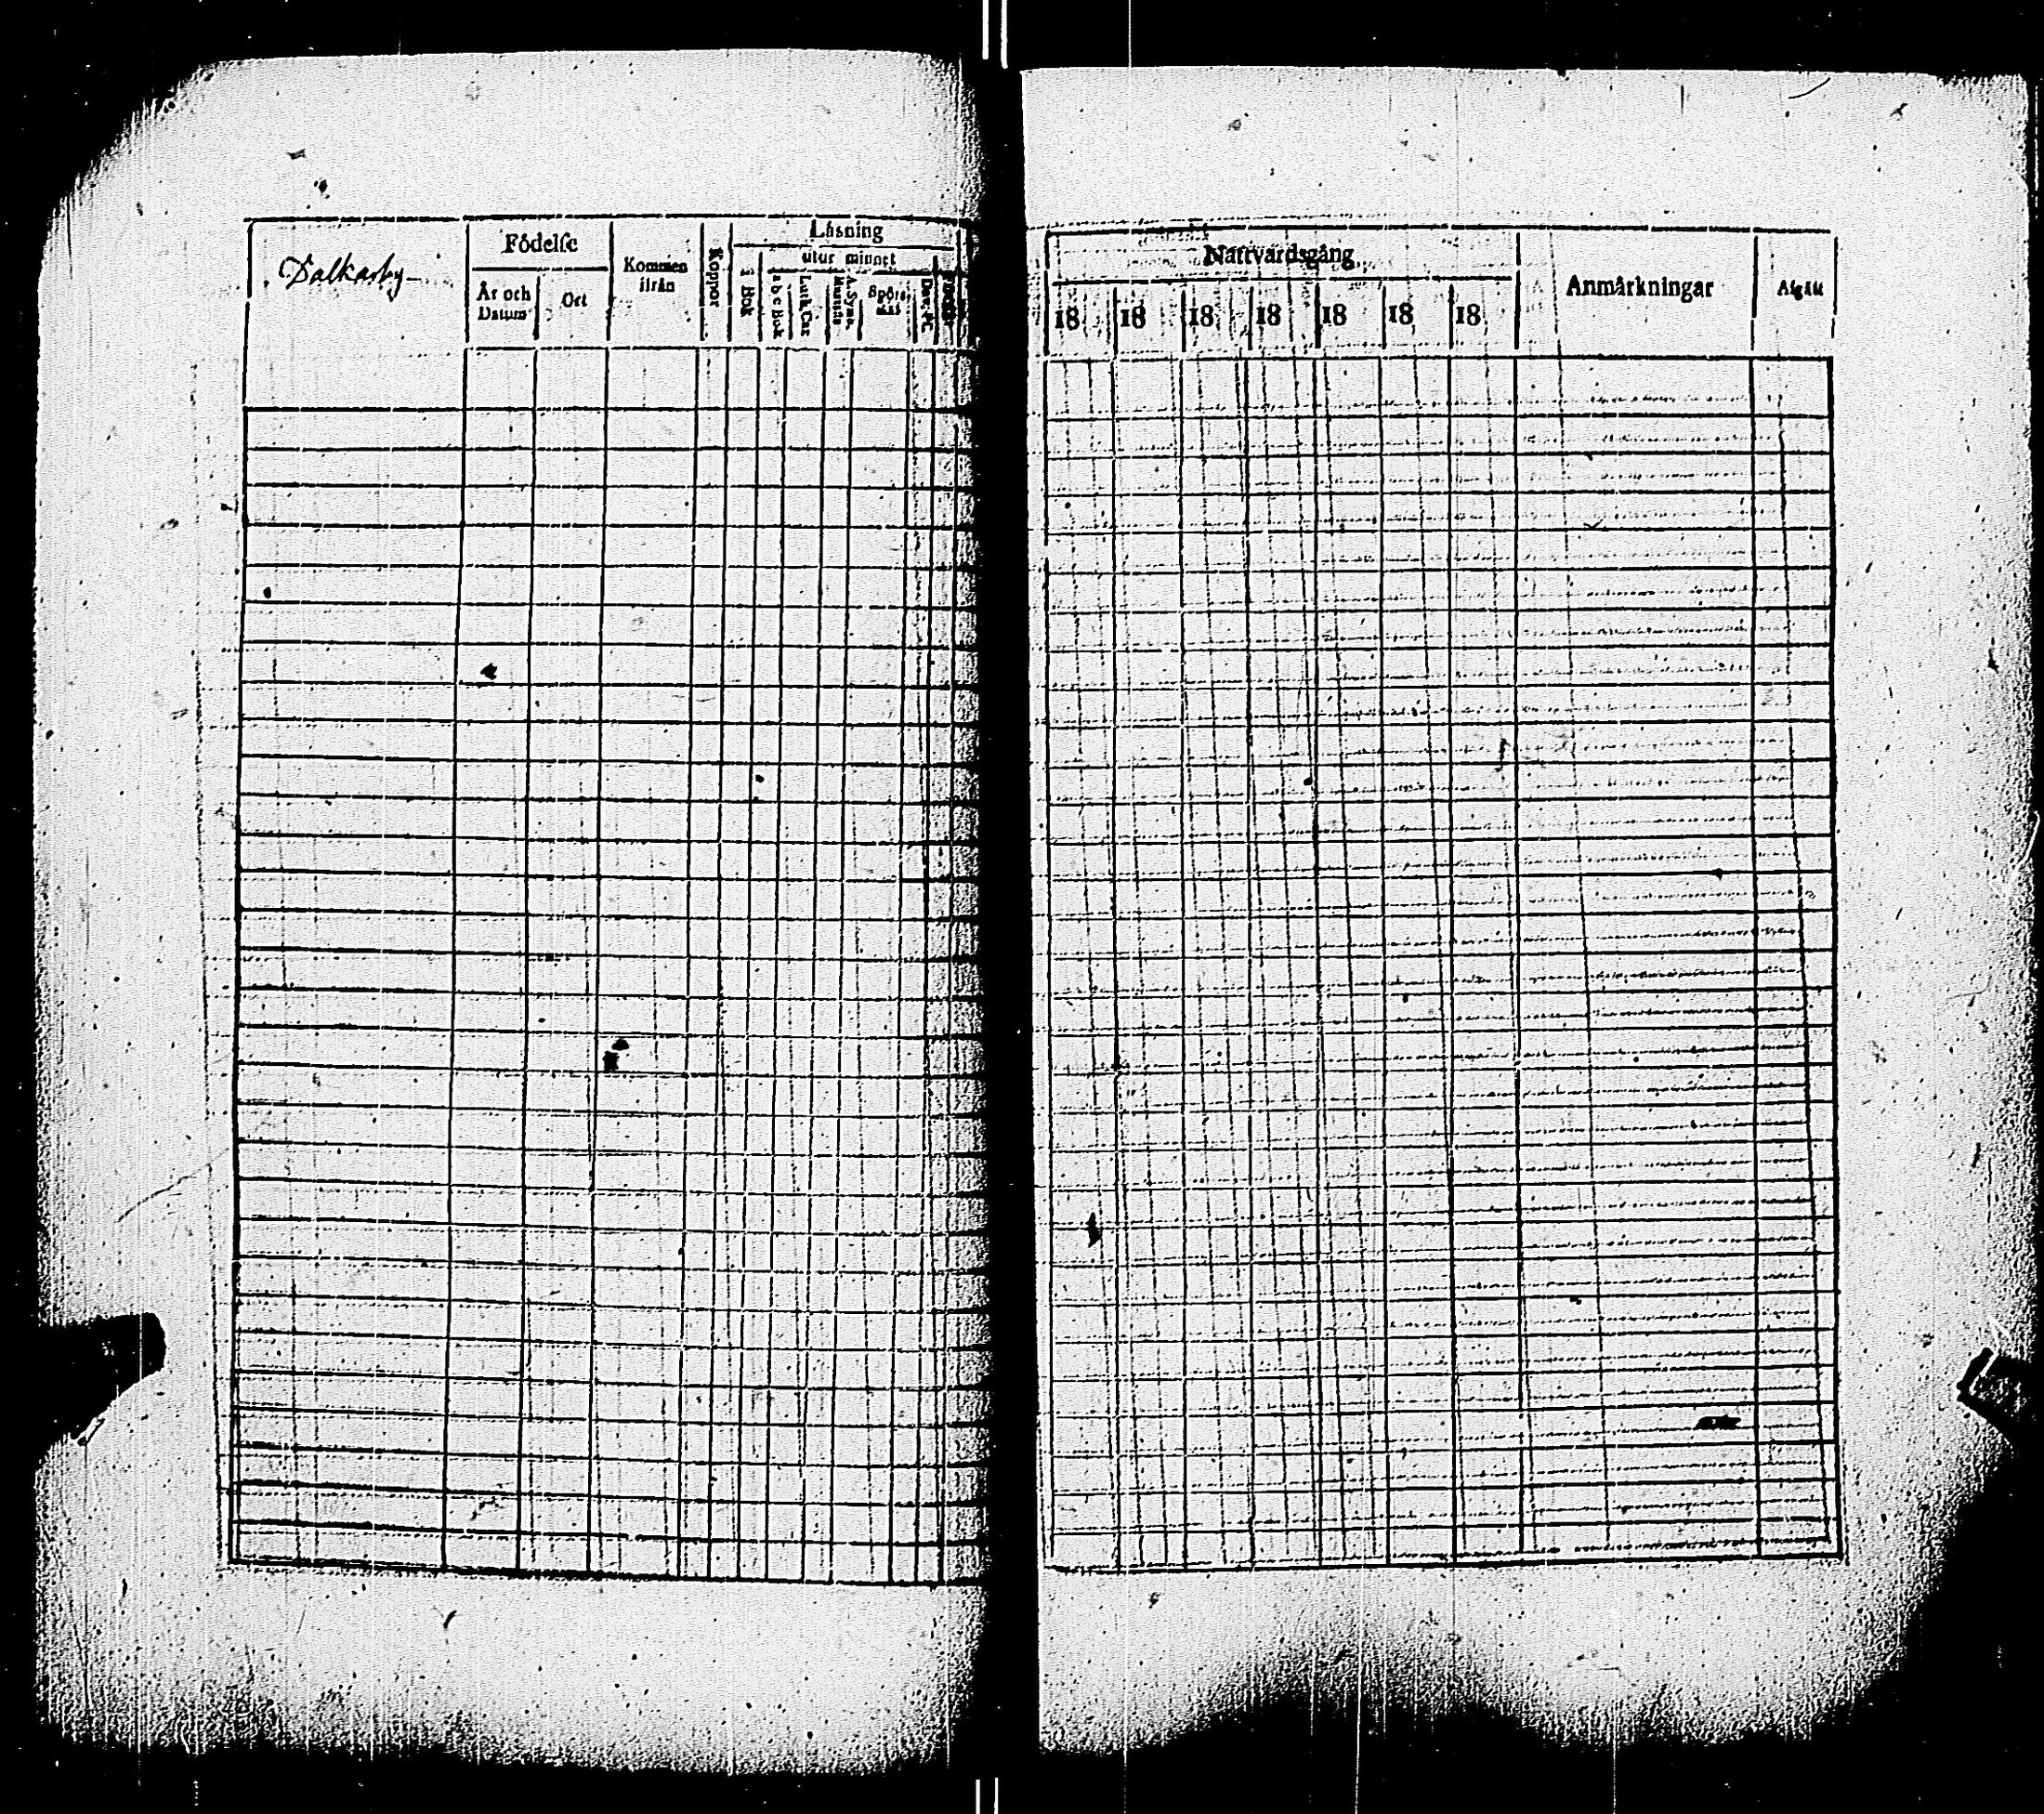 Dalkarby
Födelse
År och
Datum
Ort
Kommen
ifrån
Koppor
Läsning
i Bok
utur minnet
a b c Bok
Luth. Cat.
A. Symb.
Spörs
mål
Dav. Ps.
Nattvardsgång
18 18 18 18 18 18 18
Anmärkningar
Afgått